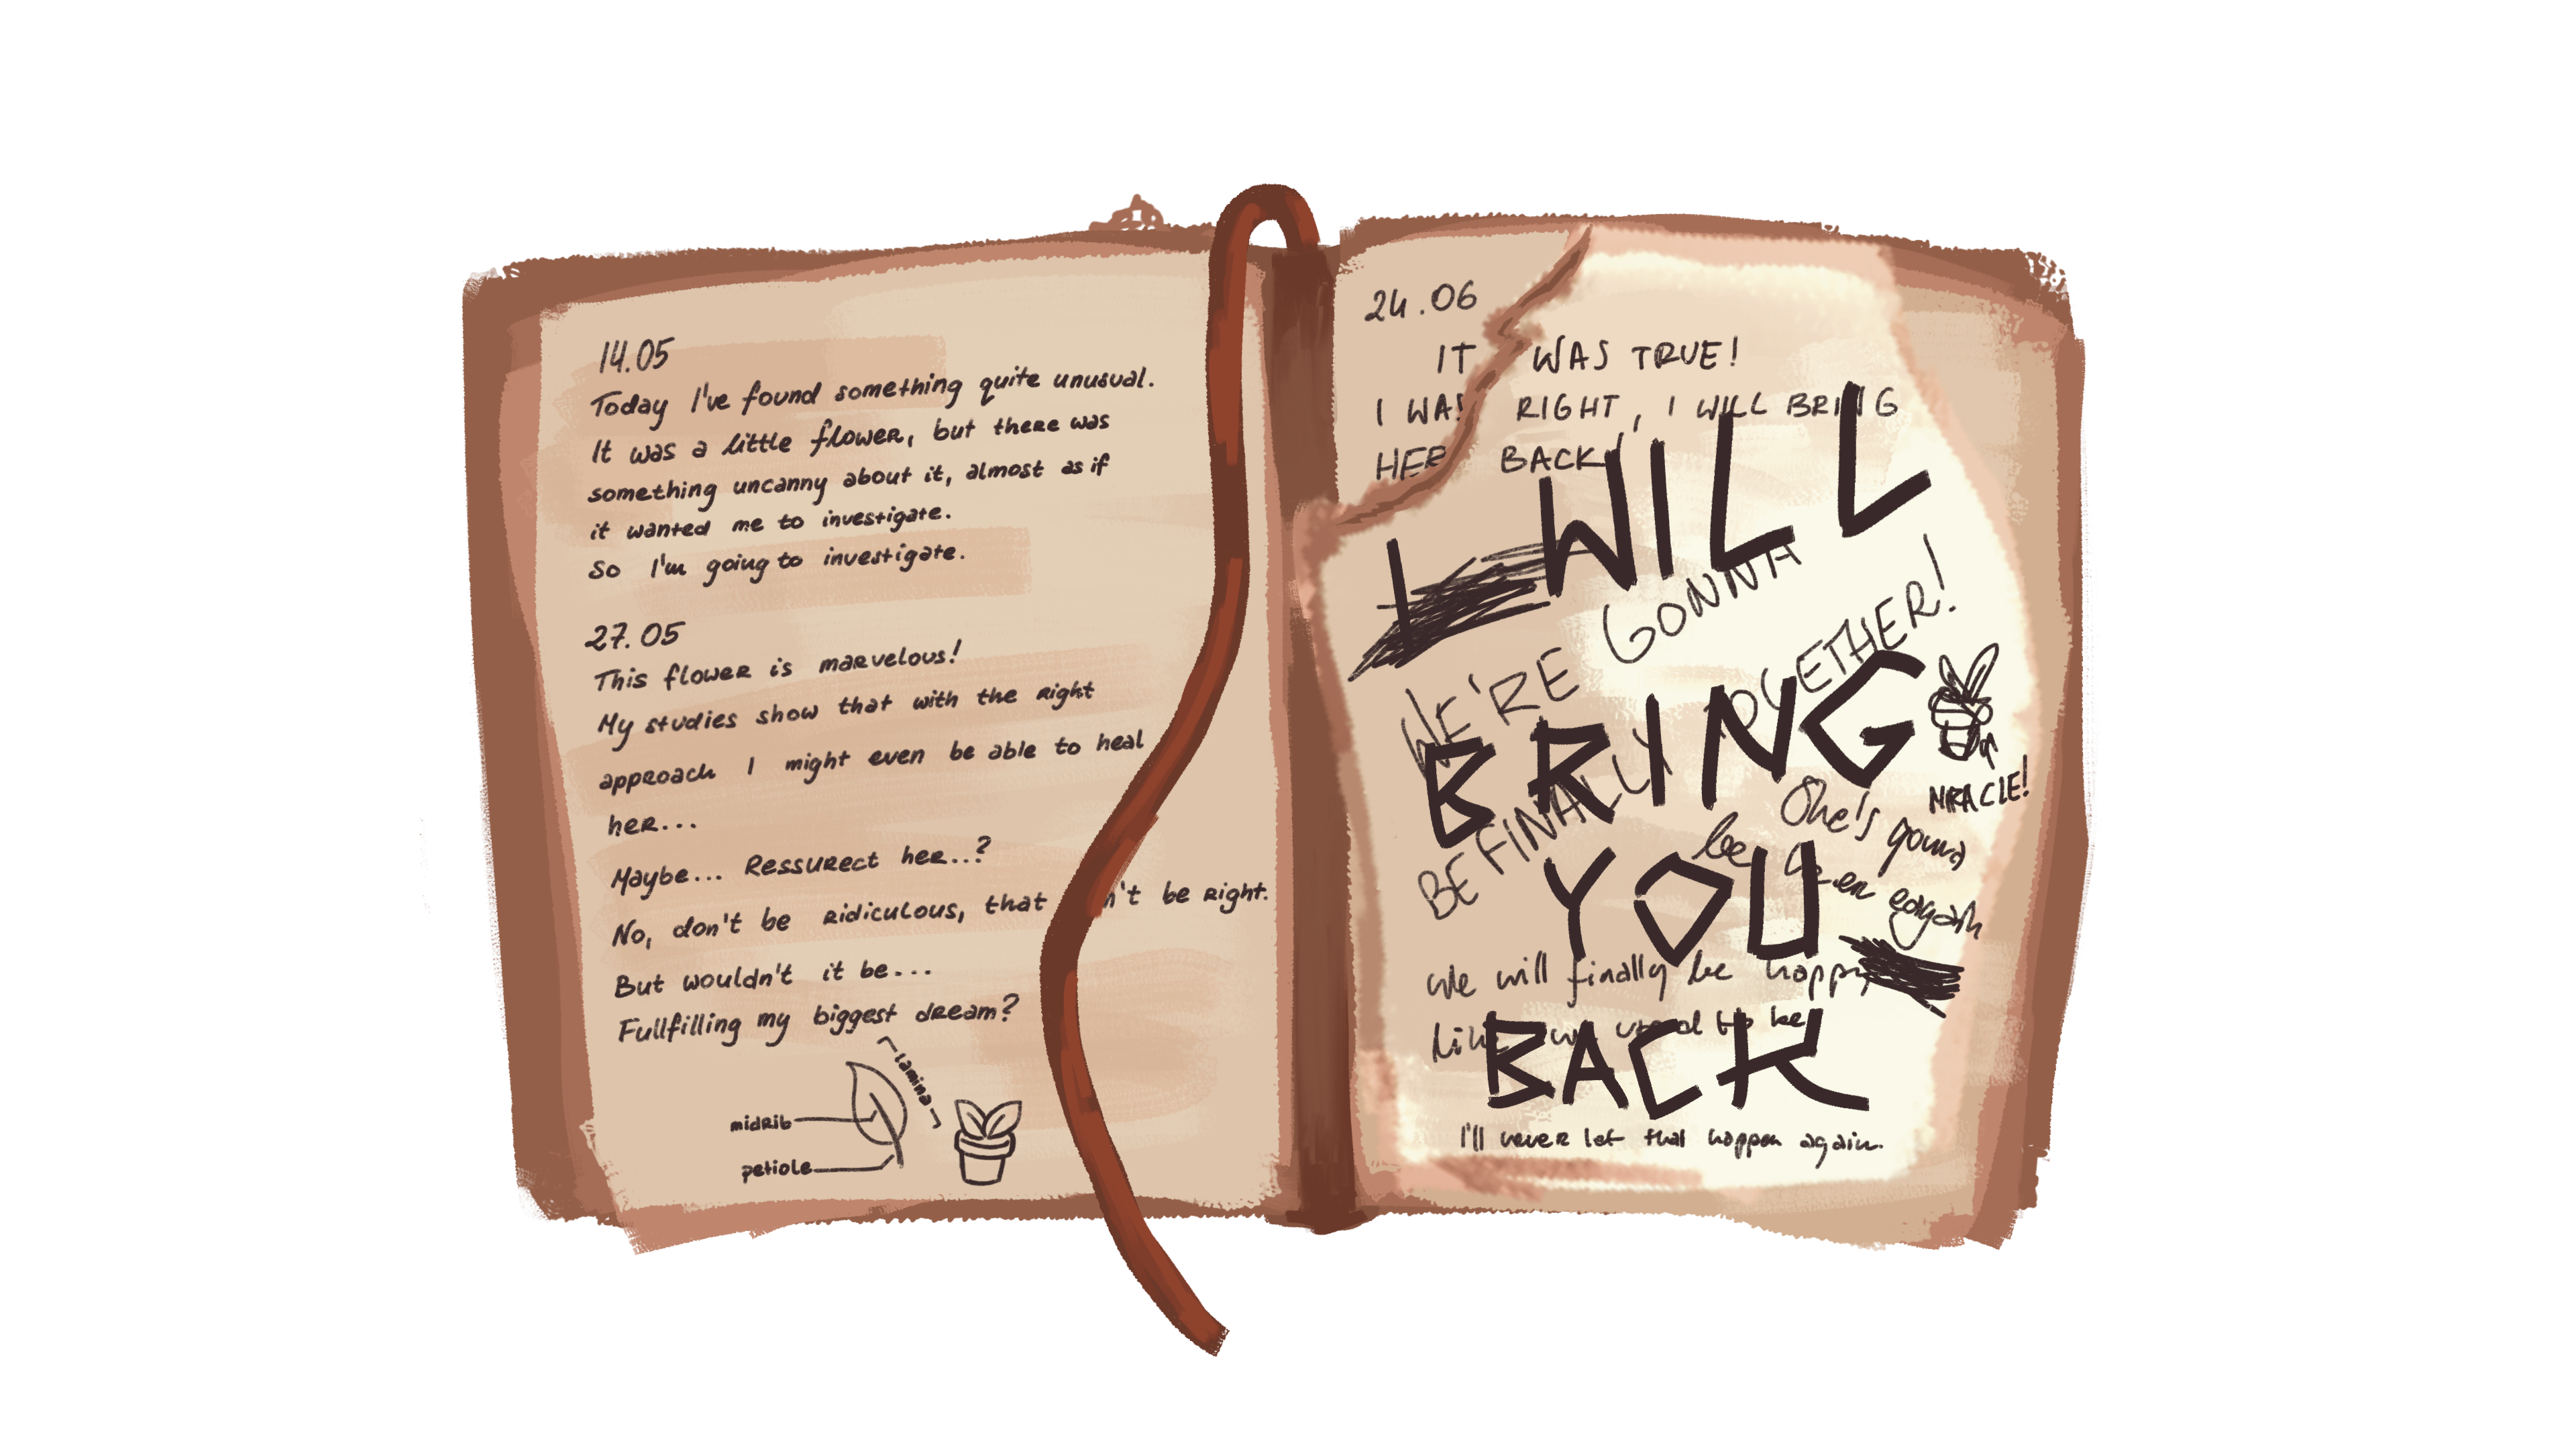 14.05
Today I've found something quite unusual.
It was a little flower, but there was
something uncanny about it, almost as if
it wanted me to investigate.
So I'm going to investigate.
27.05
This flower is marvelous!
My studies show that with the right
approach I might even be able to heal
her...
Maybe... Ressurect her..?
No, don't be ridiculous, that n't be right.
But wouldn't it be...
Fullfilling my biggest dream?
lamina
midrib
petiole
24.06
IT WAS TRUE!
I WAS RIGHT, I WILL BRING
HER BACK!
I WILL
WE'RE GONNA
BE FINALLY TOGETHER!
BRING
MRACLE!
She's gonna
be
eagain
YOU
We will finally be happy
like we used to be
BACK
I'll never let that happen again.